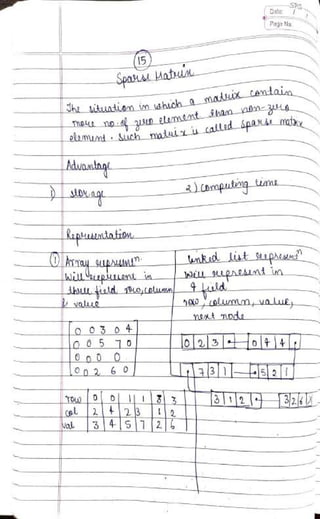 Date
Page No.
15
Sparse Matrix
The situation in which a matrix contain
more no. of zero element than non-zero
element. Such matrix is called Sparse matrix
Advantage
1) storage
2) Computing time
Representation
① Array represenⁿ
Will represent in
three field row, column
& value
0 0 3 0 4
0 0 5 7 0
0 0 0 0
0 0 2 6 0
row 0 0 1 1 3 3
col 2 4 2 3 1 2
val 3 4 5 7 2 6
Linked list represenⁿ
Will represent in
4 field
row, column, value,
next node
0 2 3
0 4 4
7 3 1
5 2 1
3 1 2
3 2 6